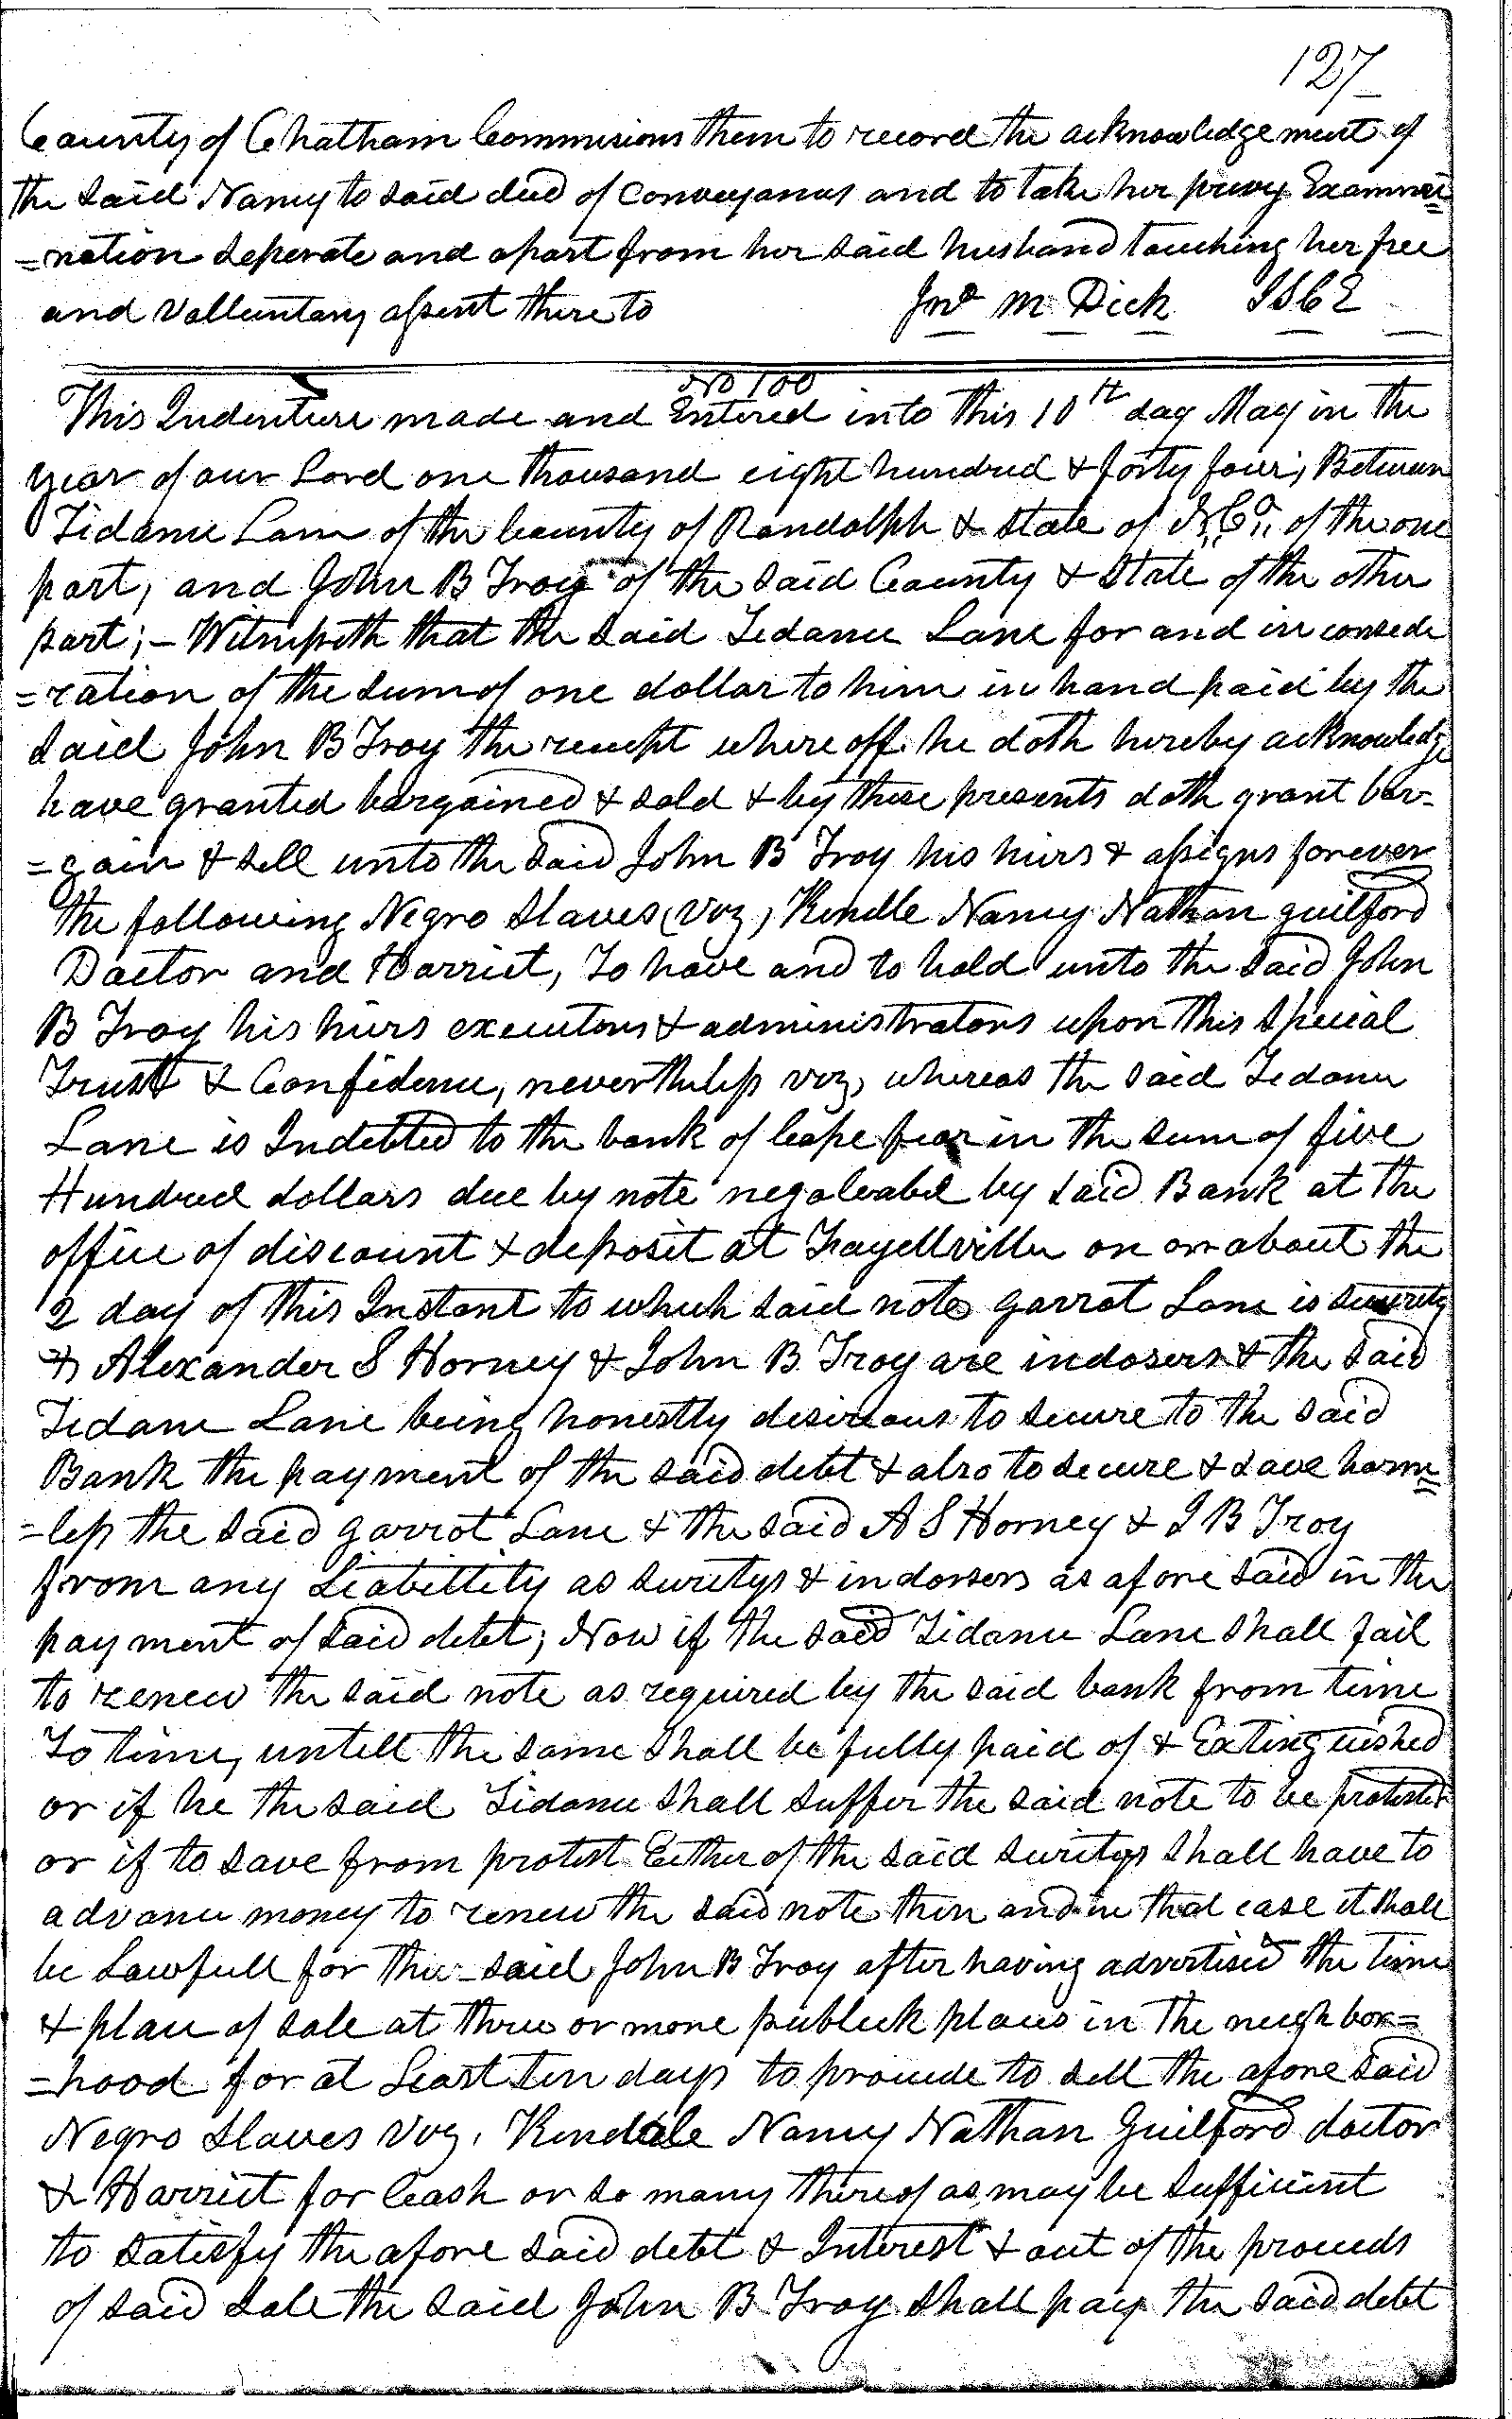 127
County of Chatham Commisions them to record the acknowledgement of
the said Nancy to said deed of Conveyances and to take her privy Exammi
=nation seperate and apart from her said husband touching her free
and Volluntary assent there to Jno M Dick JSCE
No 100
This Indenture made and Entered into this 10th day May in the
year of our Lord one thousand eight hundred & forty four; Between
Tidance Lane of the County of Randolph & State of N. Ca. of the one
part, and John B Troy of the said County & State of the other
part; - Witnesseth that the said Tedance Lane for and in conside
=ration of the sum of one dollar to him in hand paid by the
said John B Troy the receipt where off he doth hereby acknowledge
have granted bargained & sold & by these presents doth grant bar=
=gain & sell unto the said John B Troy his heirs & assigns forever
the following Negro Slaves (Viz) Kindle Nancy Nathan guilford
Doctor and Harriet, To have and to hold unto the said John
B Troy his heirs executors & administrators upon this special
Trust & Confidence, neverthless viz, whereas the said Tedance
Lane is Indebted to the bank of Cape fear in the sum of five
Hundred dollars due by note negoleabel by said Bank at the
office of discount & deposit at Fayettville on or about the
2 day of this Instant to which said note garrot Lane is security
& Alexander S Horney & John B. Troy are indosers & the said
Tedance Lane being honestly desireous to secure to the said
Bank the payment of the said debt & also to secure & save harm=
=less the said garrot Lane & the said A S Horney & J B Troy
from any Liabillity as suritys & indorsers as afore said in the
payment of said debt; Now if the said Tidance Lane shall fail
to renew the said note as required by the said bank from time
To time, untill the same shall be fully paid of & Extinguished
or if he the said Tidance shall suffer the said note to be protested
or if to save from protest Either of the said suritys shall have to
advance money to renew the said note then and in that case it shall
be Lawfull for the said John B Troy after having advertised the time
& place of sale at three or more publick places in the neighbor=
=hood for at Least ten days to proceede to sell the afore said
Negro Slaves Viz, Kindale Nancy Nathan Guilford doctor
& Harriet for Cash or so many thereof as may be sufficient
to satisfy the afore said debt & Interest & out of the proceeds
of said sale the said John B Troy shall pay the said debt